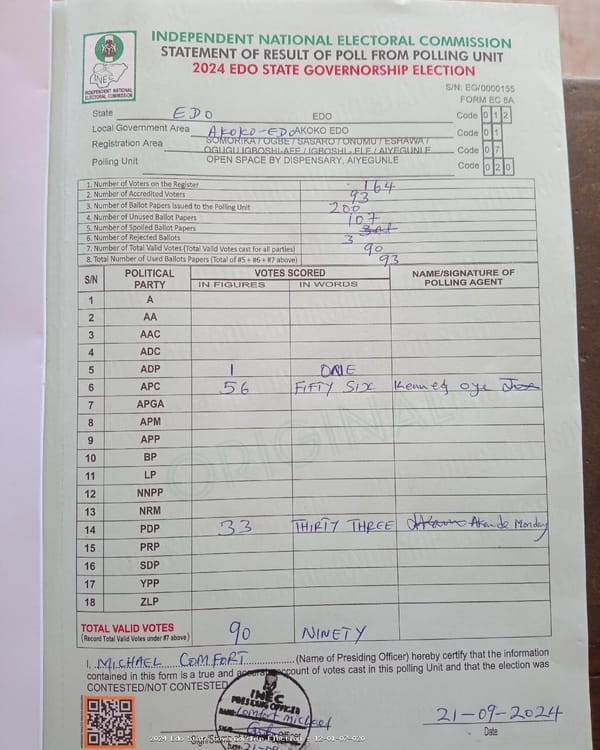 INDEPENDENT NATIONAL ELECTORAL COMMISSION
STATEMENT OF RESULT OF POLL FROM POLLING UNIT
2024 EDO STATE GOVERNORSHIP ELECTION
INEC
INDEPENDENT NATIONAL
ELECTORAL COMMISSION
S/N: EG/0000155
FORM EC 8A
State EDO EDO Code 0 1 2
Local Government Area AKOKO-EDO AKOKO EDO Code 0 1
Registration Area SOMORIKA / OGBE / SASARO / ONUMU / ESHAWA / OGUGU IGBOSHI-AFE / IGBOSHI-ELE / AIYEGUNLE Code 0 7
Polling Unit OPEN SPACE BY DISPENSARY, AIYEGUNLE Code 0 2 0
1. Number of Voters on the Register 164
2. Number of Accredited Voters 93
3. Number of Ballot Papers Issued to the Polling Unit 200
4. Number of Unused Ballot Papers 107
5. Number of Spoiled Ballot Papers
6. Number of Rejected Ballots 3
7. Number of Total Valid Votes (Total Valid Votes cast for all parties) 90
8. Total Number of Used Ballots Papers (Total of #5 + #6 + #7 above) 93
S/N POLITICAL PARTY VOTES SCORED NAME/SIGNATURE OF POLLING AGENT
IN FIGURES IN WORDS
1 A
2 AA
3 AAC
4 ADC
5 ADP 1 ONE
6 APC 56 FIFTY SIX Kennedy Oye
7 APGA
8 APM
9 APP
10 BP
11 LP
12 NNPP
13 NRM
14 PDP 33 THIRTY THREE Akande Monday
15 PRP
16 SDP
17 YPP
18 ZLP
ORIGINAL
TOTAL VALID VOTES 90 NINETY
(Record Total Valid Votes under #7 above)
I, MICHAEL COMFORT (Name of Presiding Officer) hereby certify that the information
contained in this form is a true and accurate account of votes cast in this polling Unit and that the election was
CONTESTED/NOT CONTESTED
INEC
PRESIDING OFFICER
NAME: Comfort Michael
21-09-2024
Date
2024 Edo State Governorship Election - 12-01-07-020